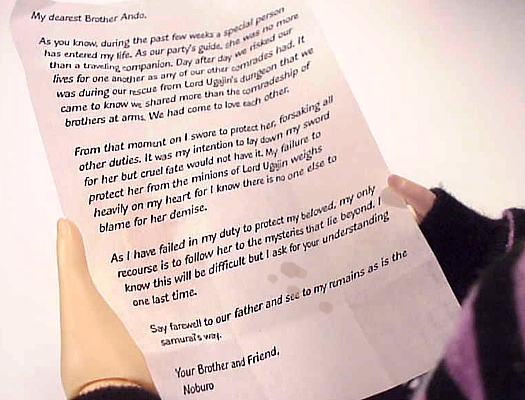 My dearest Brother Ando,
As you know, during the past few weeks a special person
has entered my life. As our party's guide, she was no more
than a traveling companion. Day after day we risked our
lives for one another as any of our other comrades had. It
was during our rescue from Lord Ugajin's dungeon that we
came to know we shared more than the comradeship of
brothers at arms. We had come to love each other.
From that moment on I swore to protect her, forsaking all
other duties. It was my intention to lay down my sword
for her but cruel fate would not have it. My failure to
protect her from the minions of Lord Ugajin weighs
heavily on my heart for I know there is no one else to
blame for her demise.
As I have failed in my duty to protect my beloved, my only
recourse is to follow her to the mysteries that lie beyond. I
know this will be difficult but I ask for your understanding
one last time.
Say farewell to our father and see to my remains as is the
samurai's way.
Your Brother and Friend,
Noburo